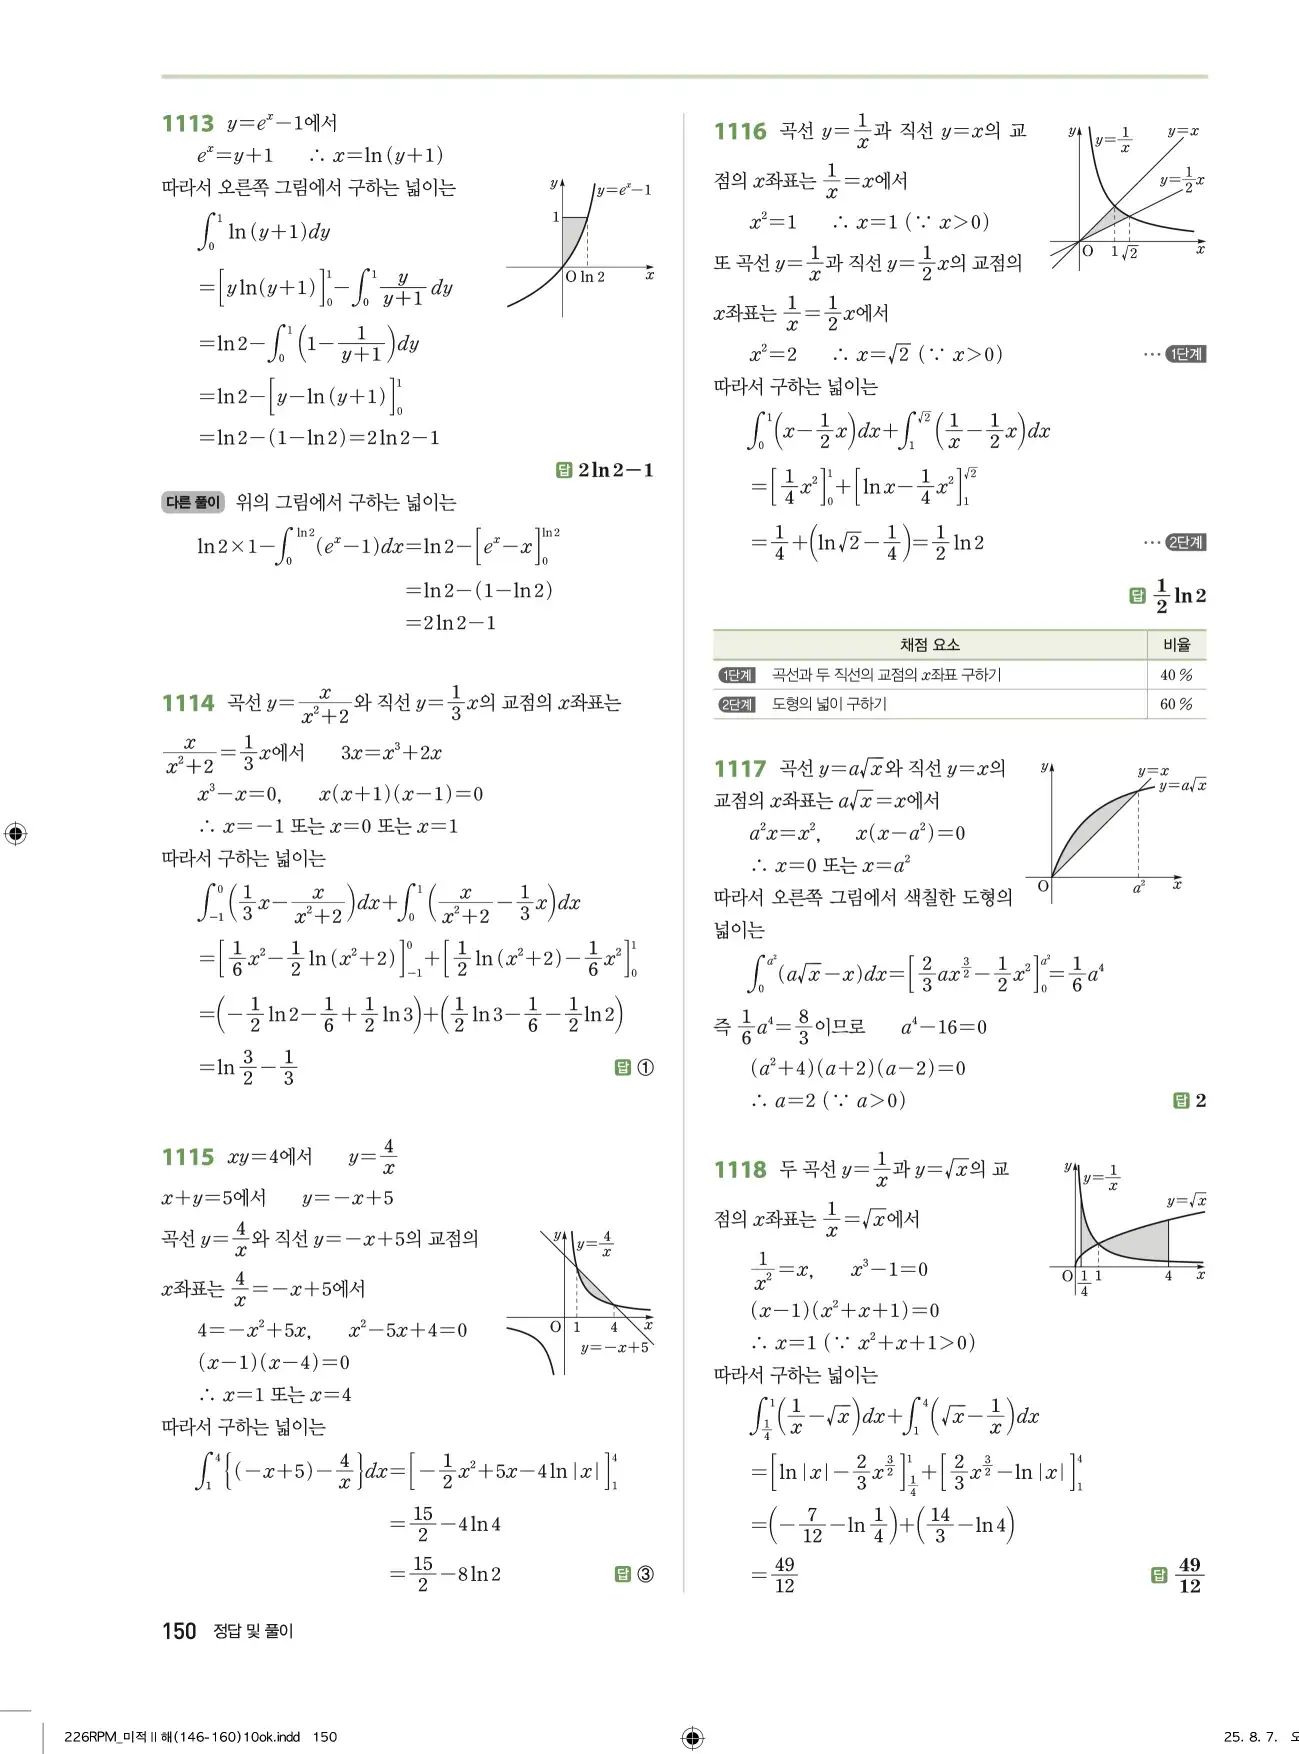 1113 y=eˣ-1에서
eˣ=y+1 ∴ x=ln(y+1)
따라서 오른쪽 그림에서 구하는 넓이는
∫₀¹ ln(y+1)dy
=[y ln(y+1)]₀¹-∫₀¹ y/(y+1) dy
=ln2-∫₀¹ (1-1/(y+1))dy
=ln2-[y-ln(y+1)]₀¹
=ln2-(1-ln2)=2ln2-1
y
y=eˣ-1
1
O ln 2 x
답 2ln2-1
다른 풀이 위의 그림에서 구하는 넓이는
ln2×1-∫₀^(ln2) (eˣ-1)dx=ln2-[eˣ-x]₀^(ln2)
=ln2-(1-ln2)
=2ln2-1
1114 곡선 y=x/(x²+2)와 직선 y=1/3 x의 교점의 x좌표는
x/(x²+2)=1/3 x에서 3x=x³+2x
x³-x=0, x(x+1)(x-1)=0
∴ x=-1 또는 x=0 또는 x=1
따라서 구하는 넓이는
∫₋₁⁰ (1/3 x-x/(x²+2))dx+∫₀¹ (x/(x²+2)-1/3 x)dx
=[1/6 x²-1/2 ln(x²+2)]₋₁⁰+[1/2 ln(x²+2)-1/6 x²]₀¹
=(-1/2 ln2-1/6+1/2 ln3)+(1/2 ln3-1/6-1/2 ln2)
=ln 3/2-1/3 답 ①
1115 xy=4에서 y=4/x
x+y=5에서 y=-x+5
곡선 y=4/x와 직선 y=-x+5의 교점의
x좌표는 4/x=-x+5에서
4=-x²+5x, x²-5x+4=0
(x-1)(x-4)=0
∴ x=1 또는 x=4
y
y=4/x
O 1 4 x
y=-x+5
따라서 구하는 넓이는
∫₁⁴ {(-x+5)-4/x}dx=[-1/2 x²+5x-4ln|x|]₁⁴
=15/2-4ln4
=15/2-8ln2 답 ③
1116 곡선 y=1/x과 직선 y=x의 교
점의 x좌표는 1/x=x에서
x²=1 ∴ x=1 (∵ x>0)
또 곡선 y=1/x과 직선 y=1/2 x의 교점의
x좌표는 1/x=1/2 x에서
x²=2 ∴ x=√2 (∵ x>0) … 1단계
y
y=1/x
y=x
y=1/2 x
O 1 √2 x
따라서 구하는 넓이는
∫₀¹ (x-1/2 x)dx+∫₁^(√2) (1/x-1/2 x)dx
=[1/4 x²]₀¹+[lnx-1/4 x²]₁^(√2)
=1/4+(ln√2-1/4)=1/2 ln2 … 2단계
답 1/2 ln2
채점 요소 비율
1단계 곡선과 두 직선의 교점의 x좌표 구하기 40 %
2단계 도형의 넓이 구하기 60 %
1117 곡선 y=a√x와 직선 y=x의
교점의 x좌표는 a√x=x에서
a²x=x², x(x-a²)=0
∴ x=0 또는 x=a²
따라서 오른쪽 그림에서 색칠한 도형의
넓이는
y
y=x
y=a√x
O a² x
∫₀^(a²) (a√x-x)dx=[2/3 ax^(3/2)-1/2 x²]₀^(a²)=1/6 a⁴
즉 1/6 a⁴=8/3이므로 a⁴-16=0
(a²+4)(a+2)(a-2)=0
∴ a=2 (∵ a>0) 답 2
1118 두 곡선 y=1/x과 y=√x의 교
점의 x좌표는 1/x=√x에서
1/x²=x, x³-1=0
(x-1)(x²+x+1)=0
∴ x=1 (∵ x²+x+1>0)
y
y=1/x
y=√x
O 1/4 1 4 x
따라서 구하는 넓이는
∫_(1/4)^1 (1/x-√x)dx+∫₁⁴ (√x-1/x)dx
=[ln|x|-2/3 x^(3/2)]_(1/4)^1+[2/3 x^(3/2)-ln|x|]₁⁴
=(-7/12-ln 1/4)+(14/3-ln4)
=49/12 답 49/12
150 정답 및 풀이
226RPM_미적Ⅱ해(146-160)10ok.indd 150
25. 8. 7.